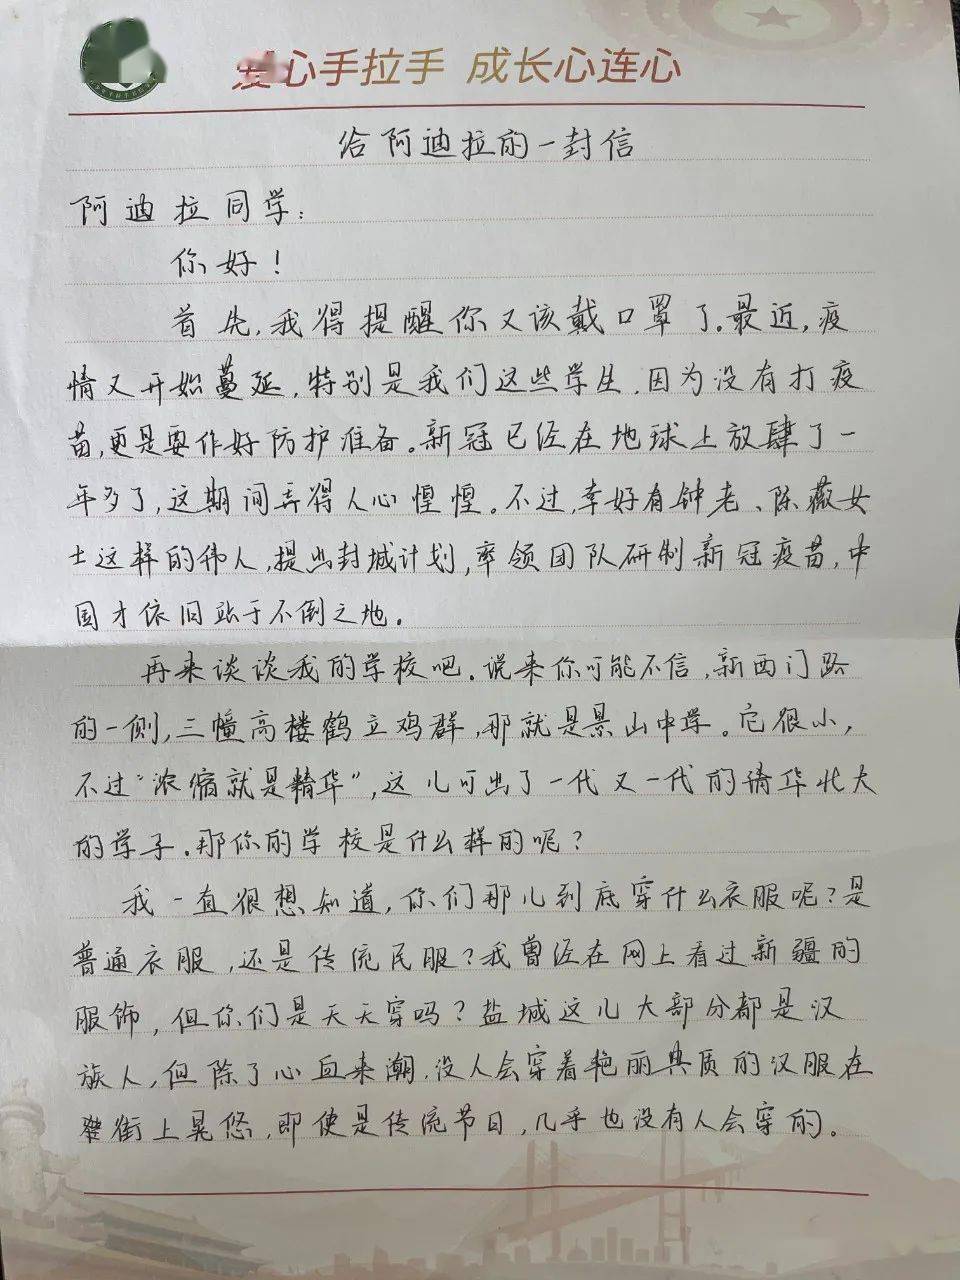 爱心手拉手 成长心连心
给阿迪拉的一封信
阿迪拉同学：
你好！
首先，我得提醒你又该戴口罩了。最近，疫
情又开始蔓延，特别是我们这些学生，因为没有打疫
苗，更是要作好防护准备。新冠已经在地球上放肆了一
年多了，这期间弄得人心惶惶。不过，幸好有钟老、陈薇女
士这样的伟人，提出封城计划，率领团队研制新冠疫苗，中
国才依旧站于不倒之地。
再来谈谈我的学校吧。说来你可能不信，新西门路
的一侧，三幢高楼鹤立鸡群，那就是景山中学。它很小，
不过“浓缩就是精华”，这儿可出了一代又一代的清华北大
的学子。那你的学校是什么样的呢？
我一直很想知道，你们那儿到底穿什么衣服呢？是
普通衣服，还是传统民服？我曾经在网上看过新疆的
服饰，但你们是天天穿吗？盐城这儿大部分都是汉
族人，但除了心血来潮，没人会穿着艳丽典质的汉服在
街上晃悠，即使是传统节日，几乎也没有人会穿的。